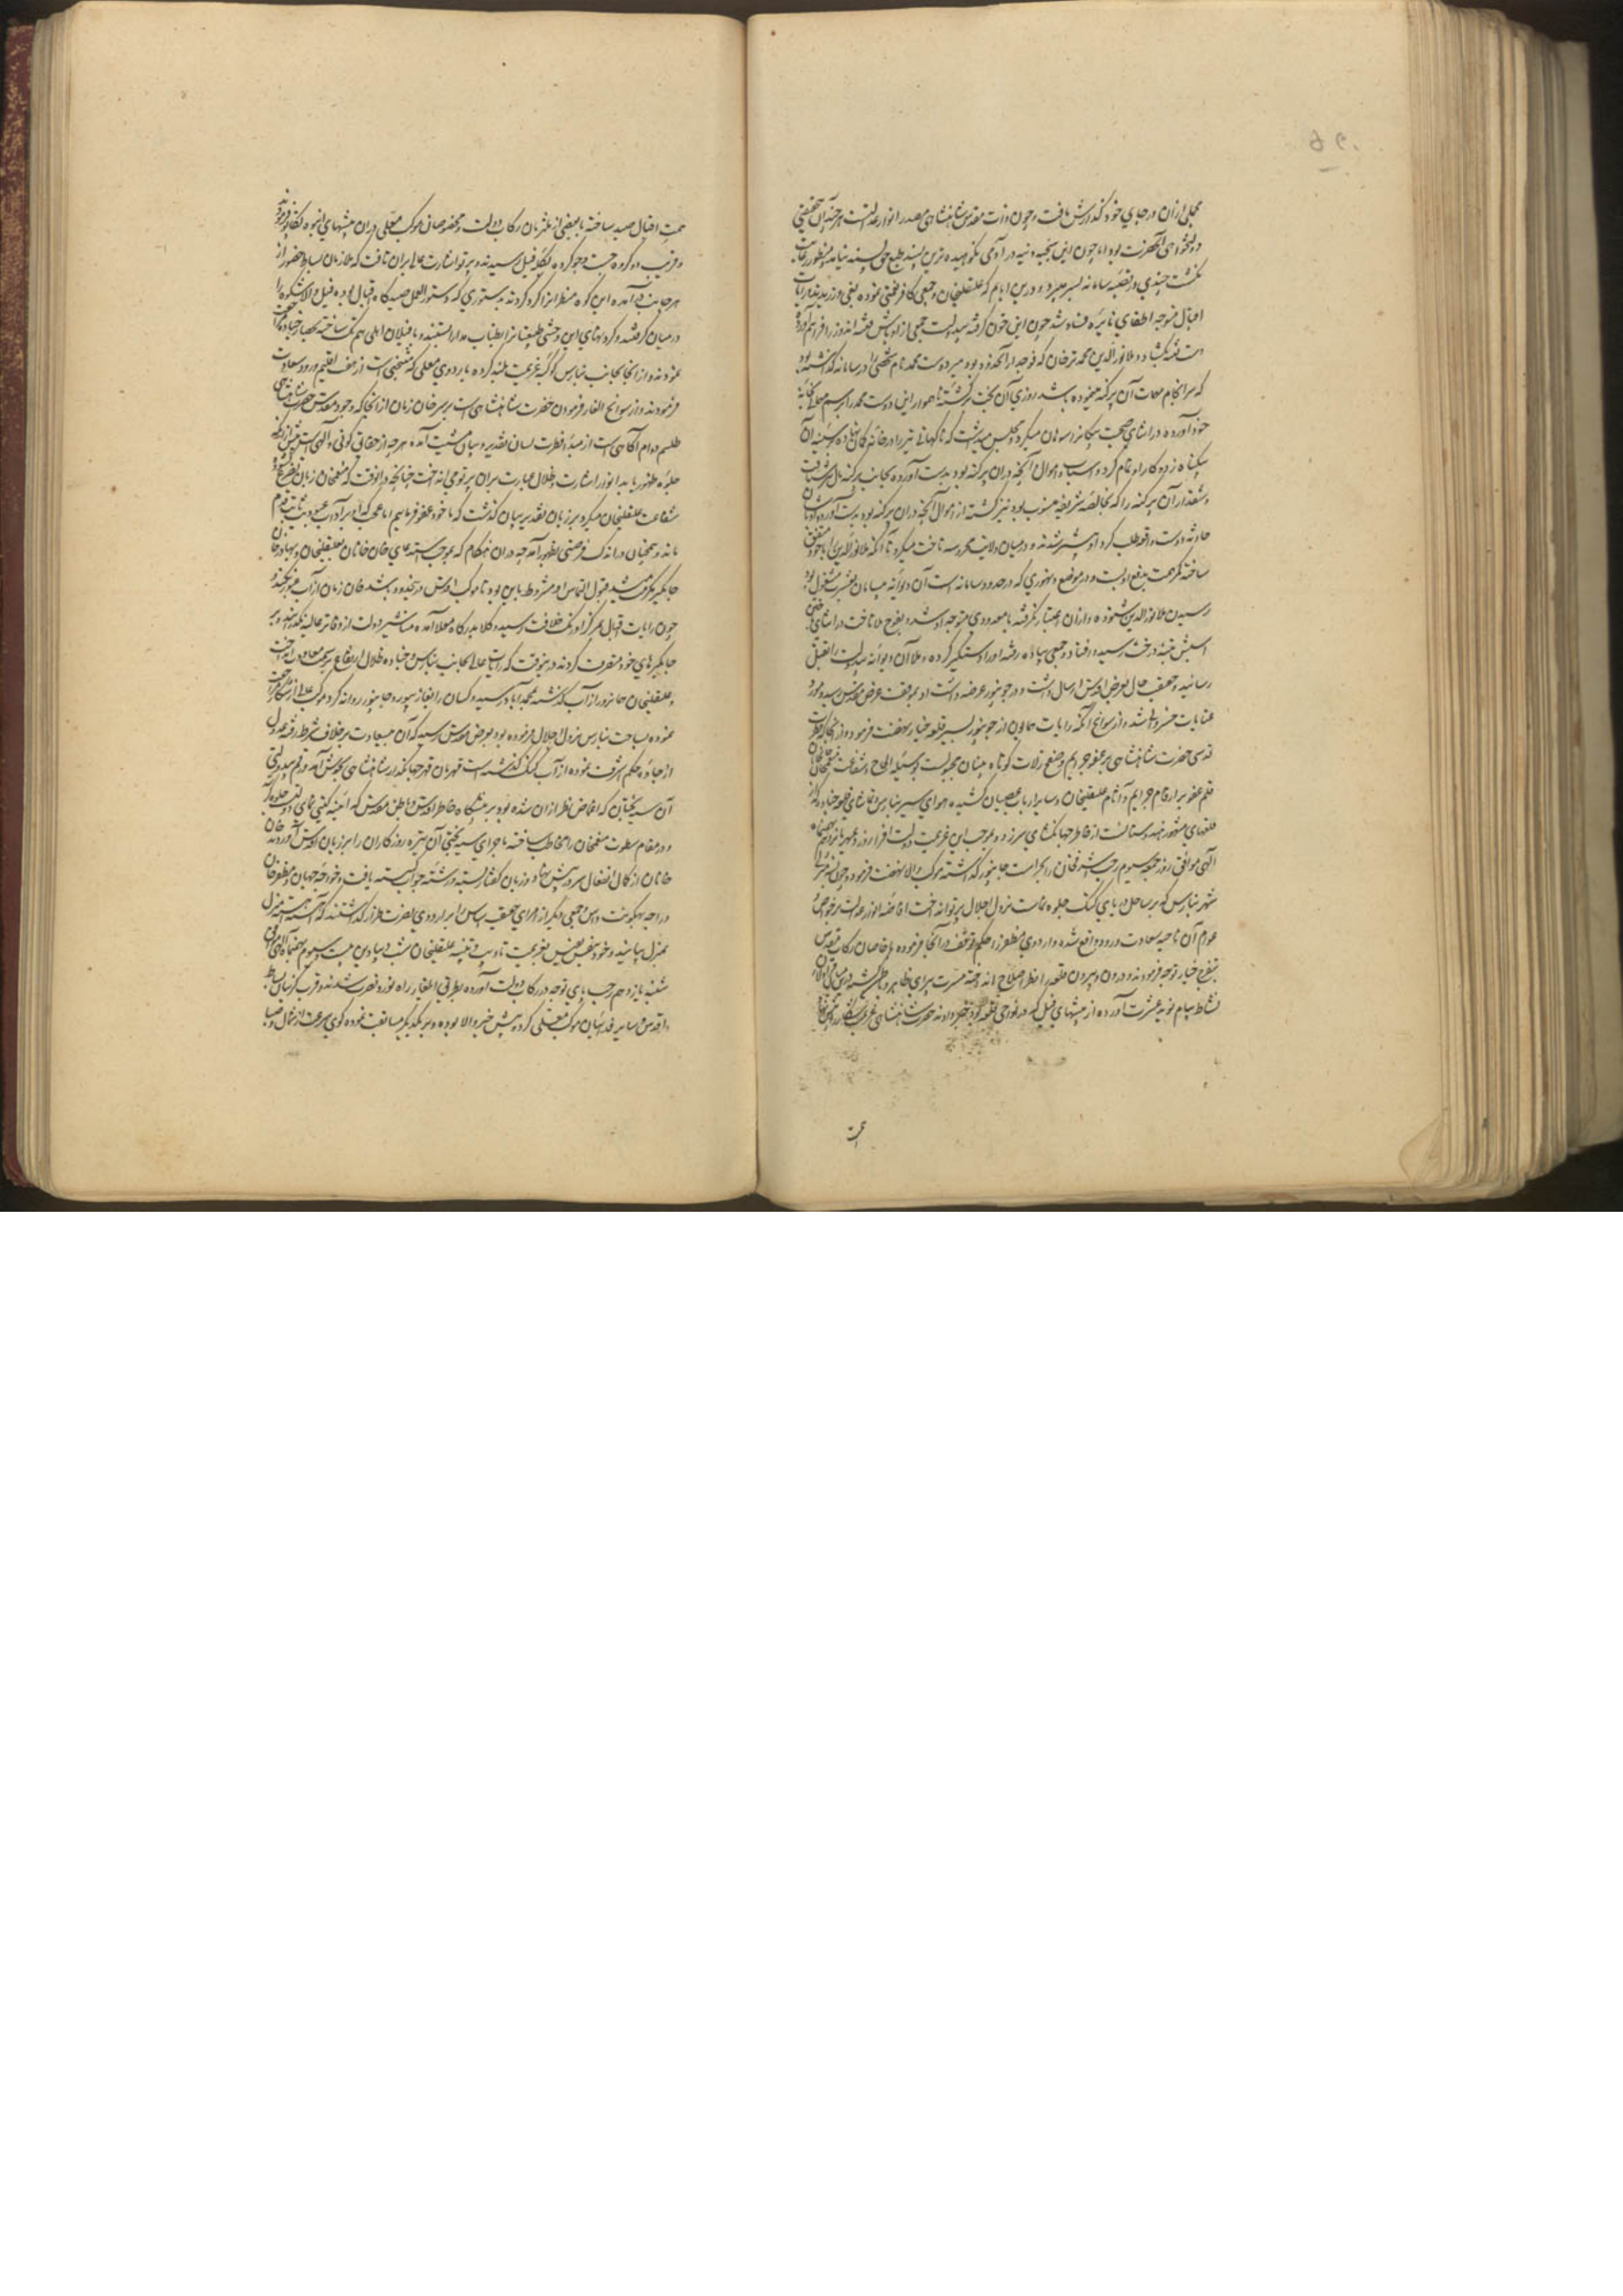 مجملی ازان در جای خود گذارش یافت و چون ذات مقدس شاهنشاهی مصدر انوار عدالتست هرچند آن حقیقی
دولتخواهی آنحضرت بود اما چون این سجیه دنیه در آدمی نکوهیده ترین پسند طبع حق پسند نیامد منظور
گشت چندی در قصبه سامانه بسر میبرد و درین ایام که علیقلیخان و جمعی کافر نعمتی نموده بغی ورزیدند رایات
اقبال متوجه اطفای نایره فساد شد چون این خون گرفته بیدولت جمعی از اوباش فتنه اندوز را فراهم آورده
دست فتنه گشاد و ملا نورالدین محمد ترخان که فوجدار آنحدود بود میر دوست محمد نام شخصی را در سامانه گذاشته بود
که سرانجام مهمات آن پرگنه مینموده باشد روزی آن بخت برگشته ناهموار این دوست محمد را برسم بخانه
خود آورده در اثنای صحبت پیکانرا سوهان میکرد و مجلس میداشت که ناگهانی تیر را در خانه کمان نهاده بر سینه آن
بیگناه زده کار او تمام کرد و اسباب و اموال آنچه دران پرگنه بود بدست آورده بجانب پرگنه شتافت
و شقدار آن پرگنه را که بخالصه شریفه منسوب بود نیز کشته از اموال آنچه دران پرگنه بود بدست آورده
حادثه دوست واقعه طلب گرد او شدند و درمیان ولایت محروسه تاخت میکرد تا آنکه ملا نورالدین با خود متفق
ساخته کمر همت بدفع او بست و در موضع دنهوری که در حدود سامانه است آن دیوانه بشرب مشغول بود
رسیدن ملا نورالدین شنوده و ازان اعتبار نگرفته با معدودی متوجه او شد و بفوج ملا تاخت در اثنای
اسپش بتنه درخت رسیده افتاد و جمعی پیاده رفته او را دستگیر کرده و ملا آن دیوانه بیدولت را بقتل
رسانید و حقیقت حال بعرض اقدس ارسال داشت و در جونپور عرضه داشت او بموقف عرض مقدس رسید و مورد
عنایات خسروانه شد و از سوانح آنکه رایات همایون از جونپور بسیر قلعه چنار نهضت فرمود و از آنجا که فطرت
قدسی حضرت شاهنشاهی بر عفو جرایم و صفح زلات کوتاه بینان مجبولست بوسیله الحاح و شفاعت منعم خان خانخانان
قلم عفو بر ارقام جرایم و آثام علیقلیخان و سایر ارباب عصیان کشیده هوای سیر بنارس و تماشای قلعه چناده که از
قلعهای مشهور هندوستانست از خاطر جهانگشای سر زد و بموجب این عزیمت دولت افزا روز مهر یازدهم بهمن ماه
الهی موافق روز جمعه سیوم رجب اشرف خان را بحراست جونپور گذاشته موکب والا نهضت فرمود و چون
شهر بنارس که بر ساحل دریای گنگ جلوه نماست نزول اجلال پرتو انداخت افاضه انوار عدالت بر خواص
عوام آن ناحیه سعادت ورود واقع شده و اردوی مظفر را حکم توقف در آنجا فرموده با خاصان رکاب مقدس
بتفرج چنار توجه فرمودند و درون و بیرون قلعه را نظر اصلاح انداخته مسرت پیرای ظاهر و باطن گشته درین
نشاط پیام نوید عشرت آورده از بیشهای فیل که در نواحی قلعه بود خبر دادند حضرت شاهنشاهی
همت
همت اقبال صید ساخته با بعضی از ملتزمان رکاب دولت و مخصوصان موکب معلی دران بیشهای انبوه تکاپو فرمودند
و قریب ده کروه جست و جو کرده بگله فیل رسیدند و پرتو اشارت عالی بران تافت که ملازمان بساط حضور از
هر جانب در آمده این کوه منظرانرا گرد کردند بدستوری که دستور العمل صیدگاه اقبال بود ده فیل والا شکوه را
درمیان گرفتند و گردنهای این وحشی طبیعتانرا بطناب مدارا بستند و با فیلان اهلی هم تنگ ساخته بحصار چناده
نمودند و از آنجا بجانب بنارس کوکبه عزیمت بلند کرده باردوی معلی که منتخبی است از هفت اقلیم ورود سعادت
فرمودند و از سوانح ایلغار فرمودن حضرت شاهنشاهی است بر سر خان زمان از آنجا که وجود مقدس حضرت شاهنشاهی
طلسم دوام آگاهی است از مبدأ فطرت لسان تقدیر و بیان مشیت آمده هر چه از حقایق کونی و الهی است پیش از آنکه
جلوه ظهور یابد انوار اشارت و ظلال عبارت بران پرتو می انداخت چنانچه در آنوقت که منعم خان زمان بتضرع
شفاعت علیقلیخان میکرد بر زبان تقدیر بیان گذشت که ما خود عفو فرمائیم اما عجب که او بر آداب عبودیت ثابت قدم
ماند و همچنان در اندک فرصتی بظهور آمد چه در آن هنگام که بموجب استدعای خان خانان بعلیقلیخان و بهادر خان
جایگیر مکرمت میشد قبول التماس او مشروط باین بود تا موکب اقدس در آنحدود باشد خان زمان از آب عبور نکند و
چون رایات اقبال بمرکز اورنگ خلافت رسید وکلا بدرگاه معلا آمده مناشیر دولت از دفاتر عالیه بگذرانند و بر
جایگیرهای خود متصرف گردند در ینوقت که رایات عالی بجانب بنارس و چناده ظلال ارتفاع بر سمت معاودت انداخت
علیقلیخان همانروز از آب گذشته بمحمداباد رسید و کسان را بغازیپور و جونپور روانه کرد موکب عالی از شکار مراجعت
نموده بساحت بنارس نزول اجلال فرموده بود بعرض اقدس رسید که آن بیسعادت بر خلاف شرط رفته عدول
از جاده حکم اشرف نموده از آب گنگ گذشته است قهرمان قهر جهانگذار شاهنشاهی بجوش آمد و رقم بیدولتی
آن سیه بختان که اغماض نظر ازان شده بود بر پیشگاه خاطر اقدس و باطن مقدس که آئینه گیتی نمای دولت جلوه گر
و در مقام سطوت منعم خان را مخاطب ساخته ماجرای سیه بختی آن تیره روزگاران را بر زبان اقدس آوردند خان
خانان از کمال انفعال سر در پیش نهاد و زبان گفتار بسته و رشته جواب گسسته یافت و خواجه جهان و مظفر خان
و راجه بهگونت داس و جمعی دیگر از امرای حقیقت اساس را بر اردوی نصرت طراز گذاشتند که آهسته آهسته منزل
بمنزل بیایند و خود بنفس نفیس بعزیمت تادیب و تنبیه علیقلیخان شب دیبادین بیست و سیوم بهمن ماه الهی موافق
شنبه یازدهم رجب پای توجه در رکاب دولت آورده بطریق ایلغار راه نورد نصرت شدند و قرب گزینان بساط
اقدس و سایر فدائیان موکب معلی گرد پیش خسرو والا بوده و بر یکدیگر مسابقت نموده گوی سرعت از شمال و صبا